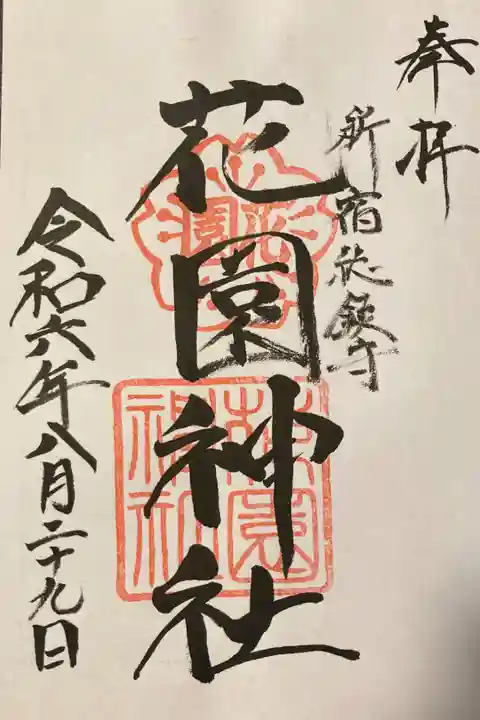 奉拝
新宿総鎮守
花園神社
令和六年八月二十九日
花園神社